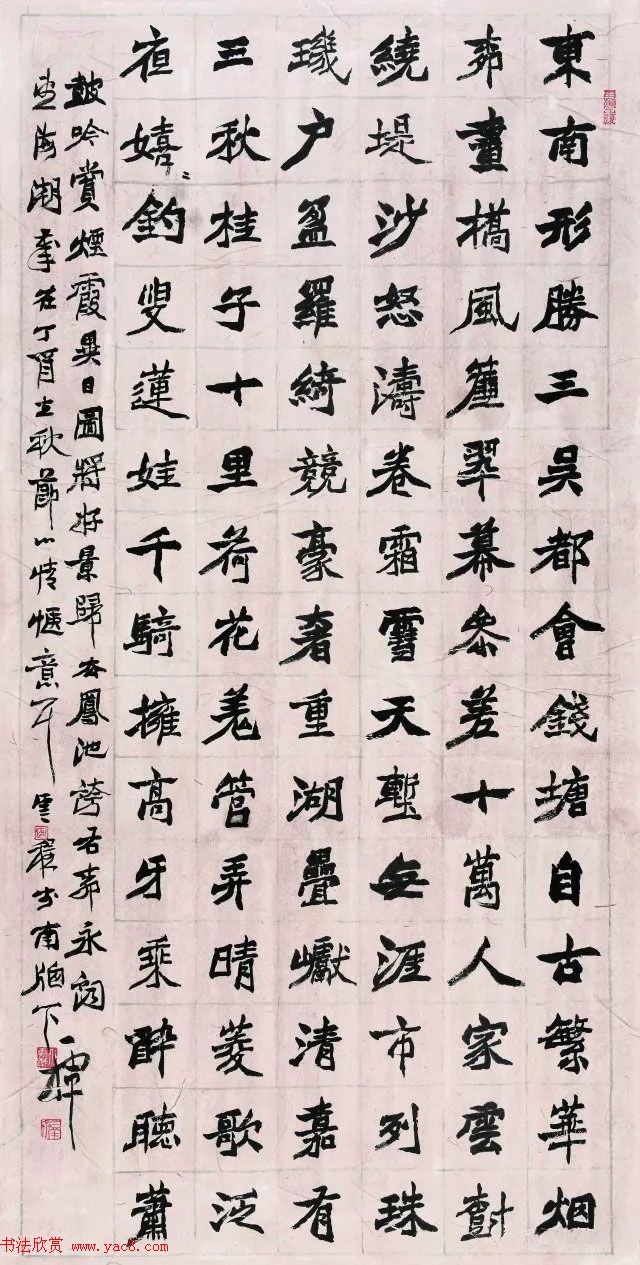 東南形勝三吴都會錢塘自古繁華烟
栁畫橋風簾翠幕叅差十萬人家雲樹
繞堤沙怒濤卷霜雪天塹無涯市列珠
璣户盈羅綺競豪奢重湖疊巘清嘉有
三秋桂子十里荷花羌管弄晴菱歌泛
夜嬉嬉釣叟蓮娃千騎擁高牙乘醉聽蕭
鼓吟賞煙霞異日圖將好景歸去鳳池誇右栁永詞
望海潮丁酉立秋節心情惬意
書法欣赏 www.yac8.com